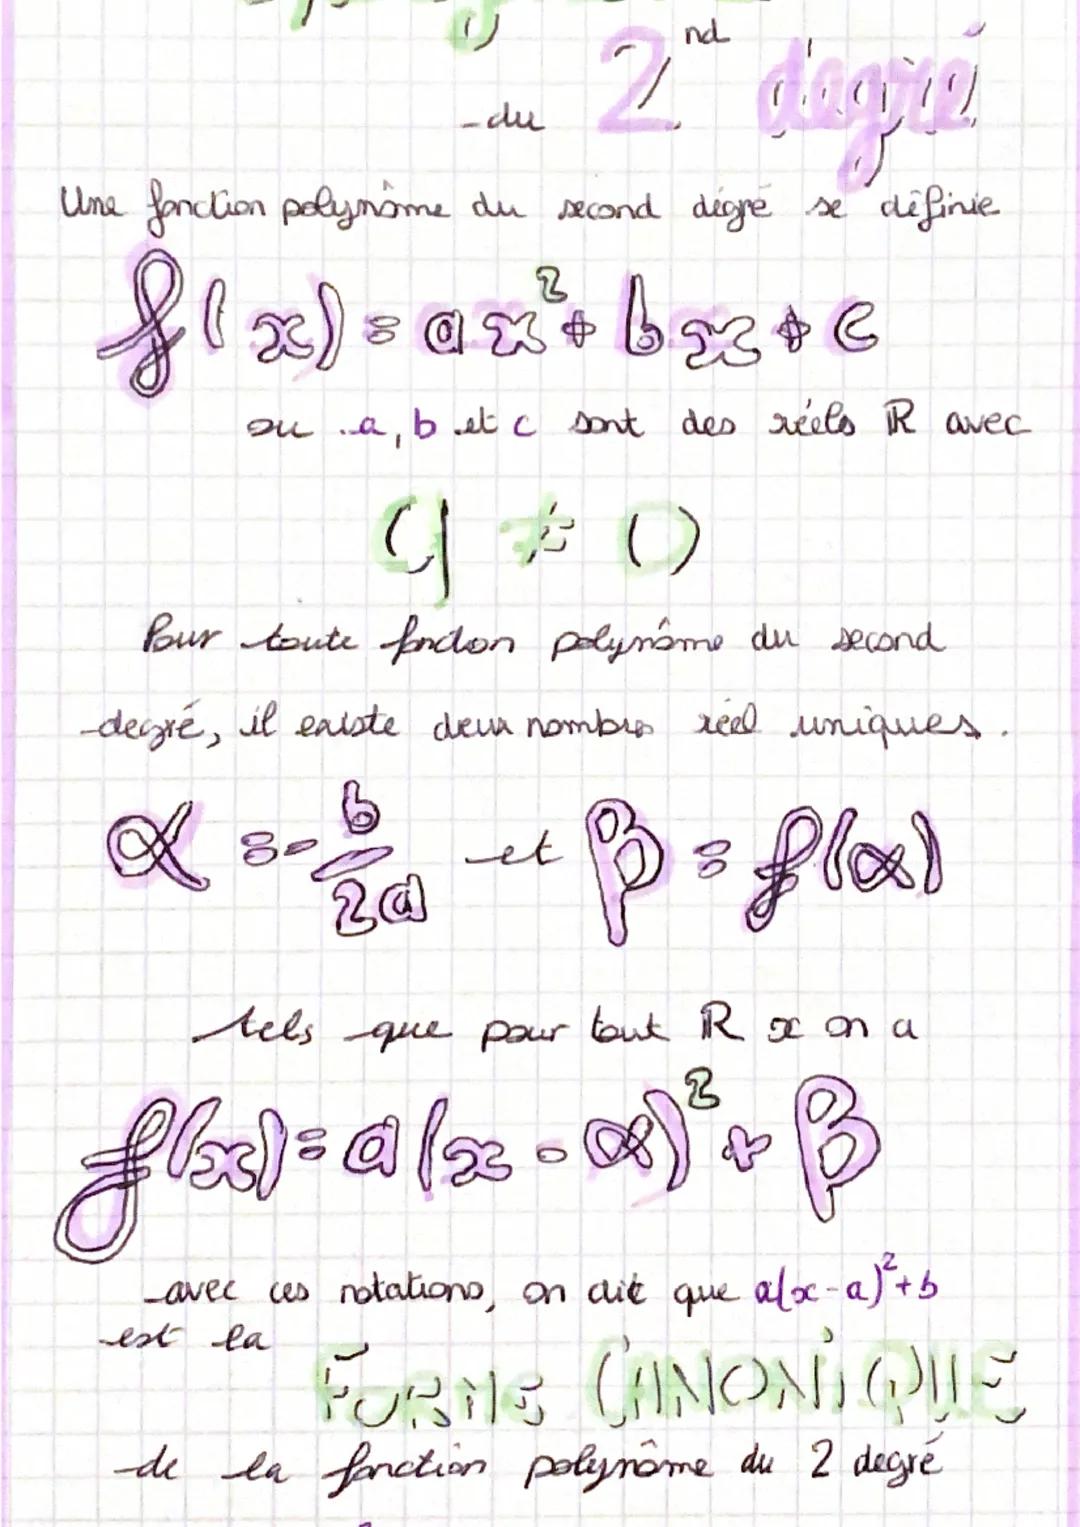 du 2nd degré
Une fonction polynôme du second dégré se définie
f(x) = ax² + bx + c
ou a, b et c sont des réels ℝ avec
a ≠ 0
Pour toute fonction polynôme du second
degré, il existe deux nombres réel uniques.
α = -b/2a et β = f(α)
tels que pour tout ℝ x on a
f(x) = a(x - α)² + β
avec ces notations, on dit que a(x-a)²+b
est la
FORME CANONIQUE
de la fonction polynôme du 2 degré